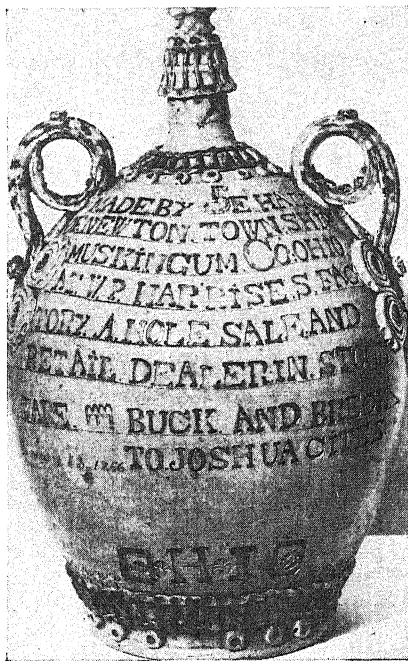 MADE BY
NEWTON. TOWNSHIP
MUSKINGUM CO. OHIO
AT. W. P. HARRISES. FAC
TORY. A. HOLE SALE. AND
RETAIL. DEALER IN. STO
BUCK AND BRE
13, 1866 TO. JOSHUA
OHIO